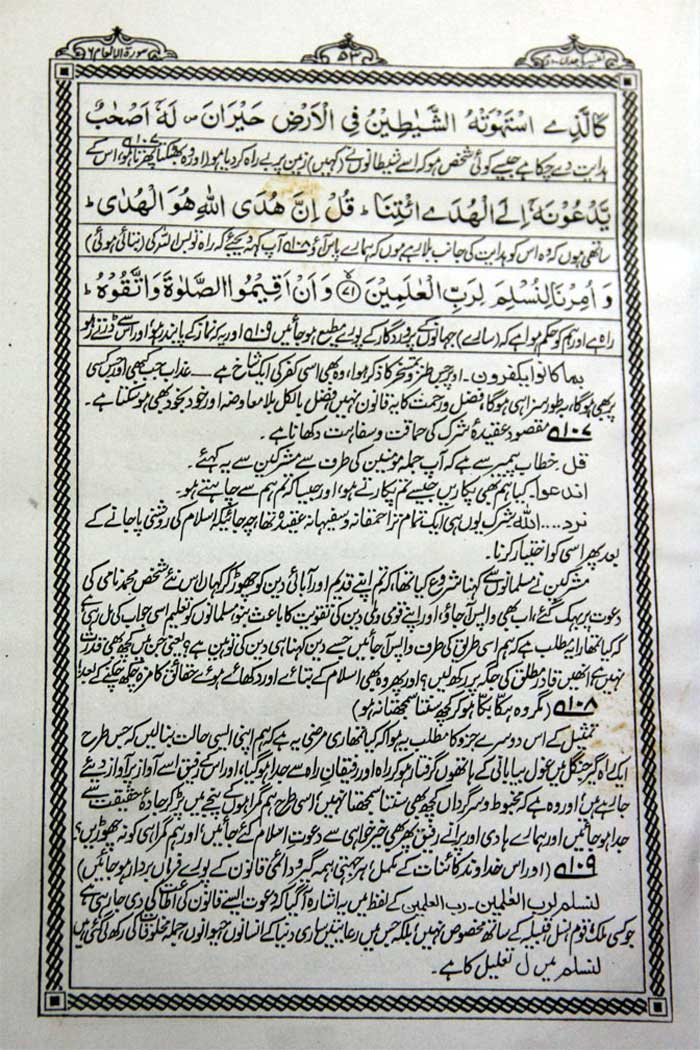 سورۃ الانعام ٦
۵۳
تفسیر ماجدی
كَالَّذِے اسْتَهْوَتْهُ الشَّيٰطِيْنُ فِى الْاَرْضِ حَيْرَانَ ۪ لَهٗۤ اَصْحٰبٌ
ہدایت دے چکا ہے جیسے کوئی شخص ہو کہ اسے شیطانوں نے (کہیں) زمین پر بے راہ کر دیا ہو اور وہ بھٹکتا پھرتا ہو، ۱۰۷ اس کے
يَّدْعُوْنَهٗۤ اِلَے الْهُدَے ائْتِنَا ؕ قُلْ اِنَّ هُدَى اللّٰهِ هُوَ الْهُدٰى ؕ
ساتھی ہوں کہ وہ اس کو ہدایت کی جانب بلا رہے ہوں کہ ہمارے پاس آؤ ۱۰۸ آپ کہہ دیجئے کہ راہ تو بس اللہ کی (بتائی ہوئی)
وَ اُمِرْنَا لِنُسْلِمَ لِرَبِّ الْعٰلَمِيْنَ ﴿۷۱﴾ وَ اَنْ اَقِيْمُوا الصَّلٰوةَ وَاتَّقُوْهُ ؕ
راہ ہے اور ہم کو حکم ہوا ہے کہ (سارے) جہانوں کے پروردگار کے پورے مطیع ہو جائیں ۱۰۹ اور یہ کہ نماز کے پابند رہو اور اس سے ڈرتے رہو
بما کانوا یکفرون۔ اوپر جس طنز و تمسخر کا ذکر ہوا، وہ بھی اسی کفر کی ایک شاخ ہے — عذاب جب کبھی اور جس کسی
پر بھی ہوگا، بہ طور سزا ہی ہوگا، فضل و رحمت کا یہ قانون نہیں فضل بالکل بلا معاوضہ اور خود بخود بھی ہو سکتا ہے۔
۱۰۷ مقصود عقیدۂ شرک کی حماقت و سفاہت دکھانا ہے۔
قل۔ خطاب پیمبر سے ہے کہ آپ جملہ مومنین کی طرف سے مشرکین سے یہ کہئے۔
اندعوا۔ کیا ہم بھی پکاریں جیسے تم پکارتے ہو، اور جیسا کہ تم ہم سے چاہتے ہو۔
نرد....اللہ شرک یوں ہی ایک تمام تر احمقانہ و سفیہانہ عقیدہ تھا، چہ جائیکہ اسلام کی روشنی پا جانے کے
بعد پھر اسی کو اختیار کرنا۔
مشرکین نے مسلمانوں سے کہنا شروع کیا تھا، کہ تم اپنے قدیم اور آبائی دین کو چھوڑ کر کہاں اس نئے شخص محمد نامی کی
دعوت پر بہک گئے، اب بھی واپس آ جاؤ، اور اپنے قومی و ملی دین کی تقویت کا باعث بنو، مسلمانوں کو تعلیم اسی جواب کی مل رہی ہے
کہ کیا تمھارا یہ مطلب ہے کہ ہم اسی طریق کی طرف واپس آ جائیں جسے دین کہنا ہی دین کی توہین ہے؟ یعنی جن میں کچھ بھی قدرت
نہیں ہے، انھیں قادر مطلق کی جگہ پر رکھ لیں؟ اور پھر وہ بھی اسلام کے بتائے اور دکھائے ہوئے حقائق کا مزہ چکھ چکنے کے بعد!
۱۰۸ (مگر وہ ہکا بکا ہو کر کچھ سنتا سمجھتا نہ ہو)
تمثیل کے اس دوسرے جزو کا مطلب یہ ہوا کہ کیا تمھاری مرضی یہ ہے کہ ہم اپنی ایسی حالت بنا لیں کہ جس طرح
ایک راہ گیر جنگل میں غول بیابانی کے ہاتھوں گرفتار ہو کر راہ اور رفیقان راہ سے جدا ہو گیا، اور اس کے رفیق اسے آواز پر آواز دیئے
جا رہے ہیں، اور وہ ہے کہ مخبوط و سرگرداں کچھ بھی سنتا سمجھتا نہیں، اسی طرح ہم گمراہوں کے پنجے میں پڑ کر جادۂ حقیقت سے
جدا ہو جائیں اور ہمارے ہادی اور پرانے رفیق پھر بھی خیر خواہی سے دعوت اسلام کئے جائیں، اور ہم گمراہی کو نہ چھوڑیں؟
۱۰۹ (اور اس خداوند کائنات کے مکمل، ہر جہتی، ہمہ گیر و دائمی قانون کے پورے فرماں بردار ہو جائیں)
لنسلم لرب العٰلمین۔ رب العلمین کے لفظ میں یہ اشارہ آ گیا کہ دعوت ایسے قانون کی اطاعت کی دی جا رہی ہے
جو کسی ملک، قوم، نسل، قبیلہ کے ساتھ مخصوص نہیں، بلکہ جس میں رعایتیں ساری دنیا کے انسانوں، حیوانوں، جملہ مخلوقات کی رکھ لی گئی ہیں
لنسلم میں ل تعلیل کا ہے۔